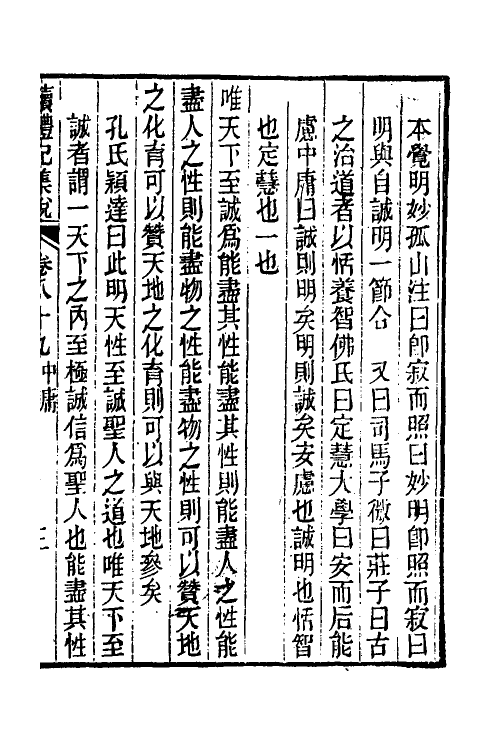 本覺明妙孤山注曰卽寂而照曰妙明卽照而寂曰
明與自誠明一節合　又曰司馬子微曰莊子曰古
之治道者以恬養智佛氏曰定慧大學曰安而后能
慮中庸曰誠則明矣明則誠矣安慮也誠明也恬智
也定慧也一也
唯天下至誠爲能盡其性能盡其性則能盡人之性能
盡人之性則能盡物之性能盡物之性則可以贊天地
之化育可以贊天地之化育則可以與天地參矣
孔氏穎達曰此明天性至誠聖人之道也唯天下至
誠者謂一天下之內至極誠信爲聖人也能盡其性
續禮記集說　卷八十九中庸　三